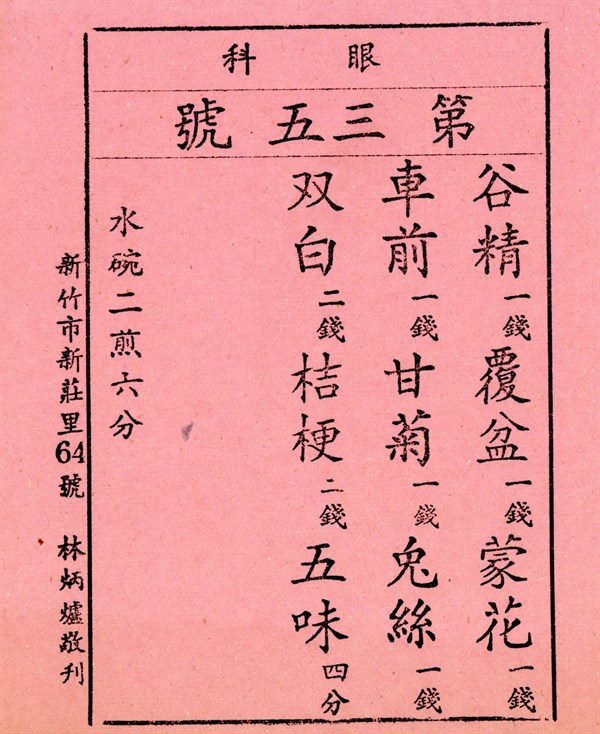 眼科
第三五號
谷精一錢 覆盆一錢 蒙花一錢
車前一錢 甘菊一錢 兔絲一錢
双白二錢 桔梗二錢 五味四分
水碗二煎六分
新竹市新莊里64號 林炳爐敬刊